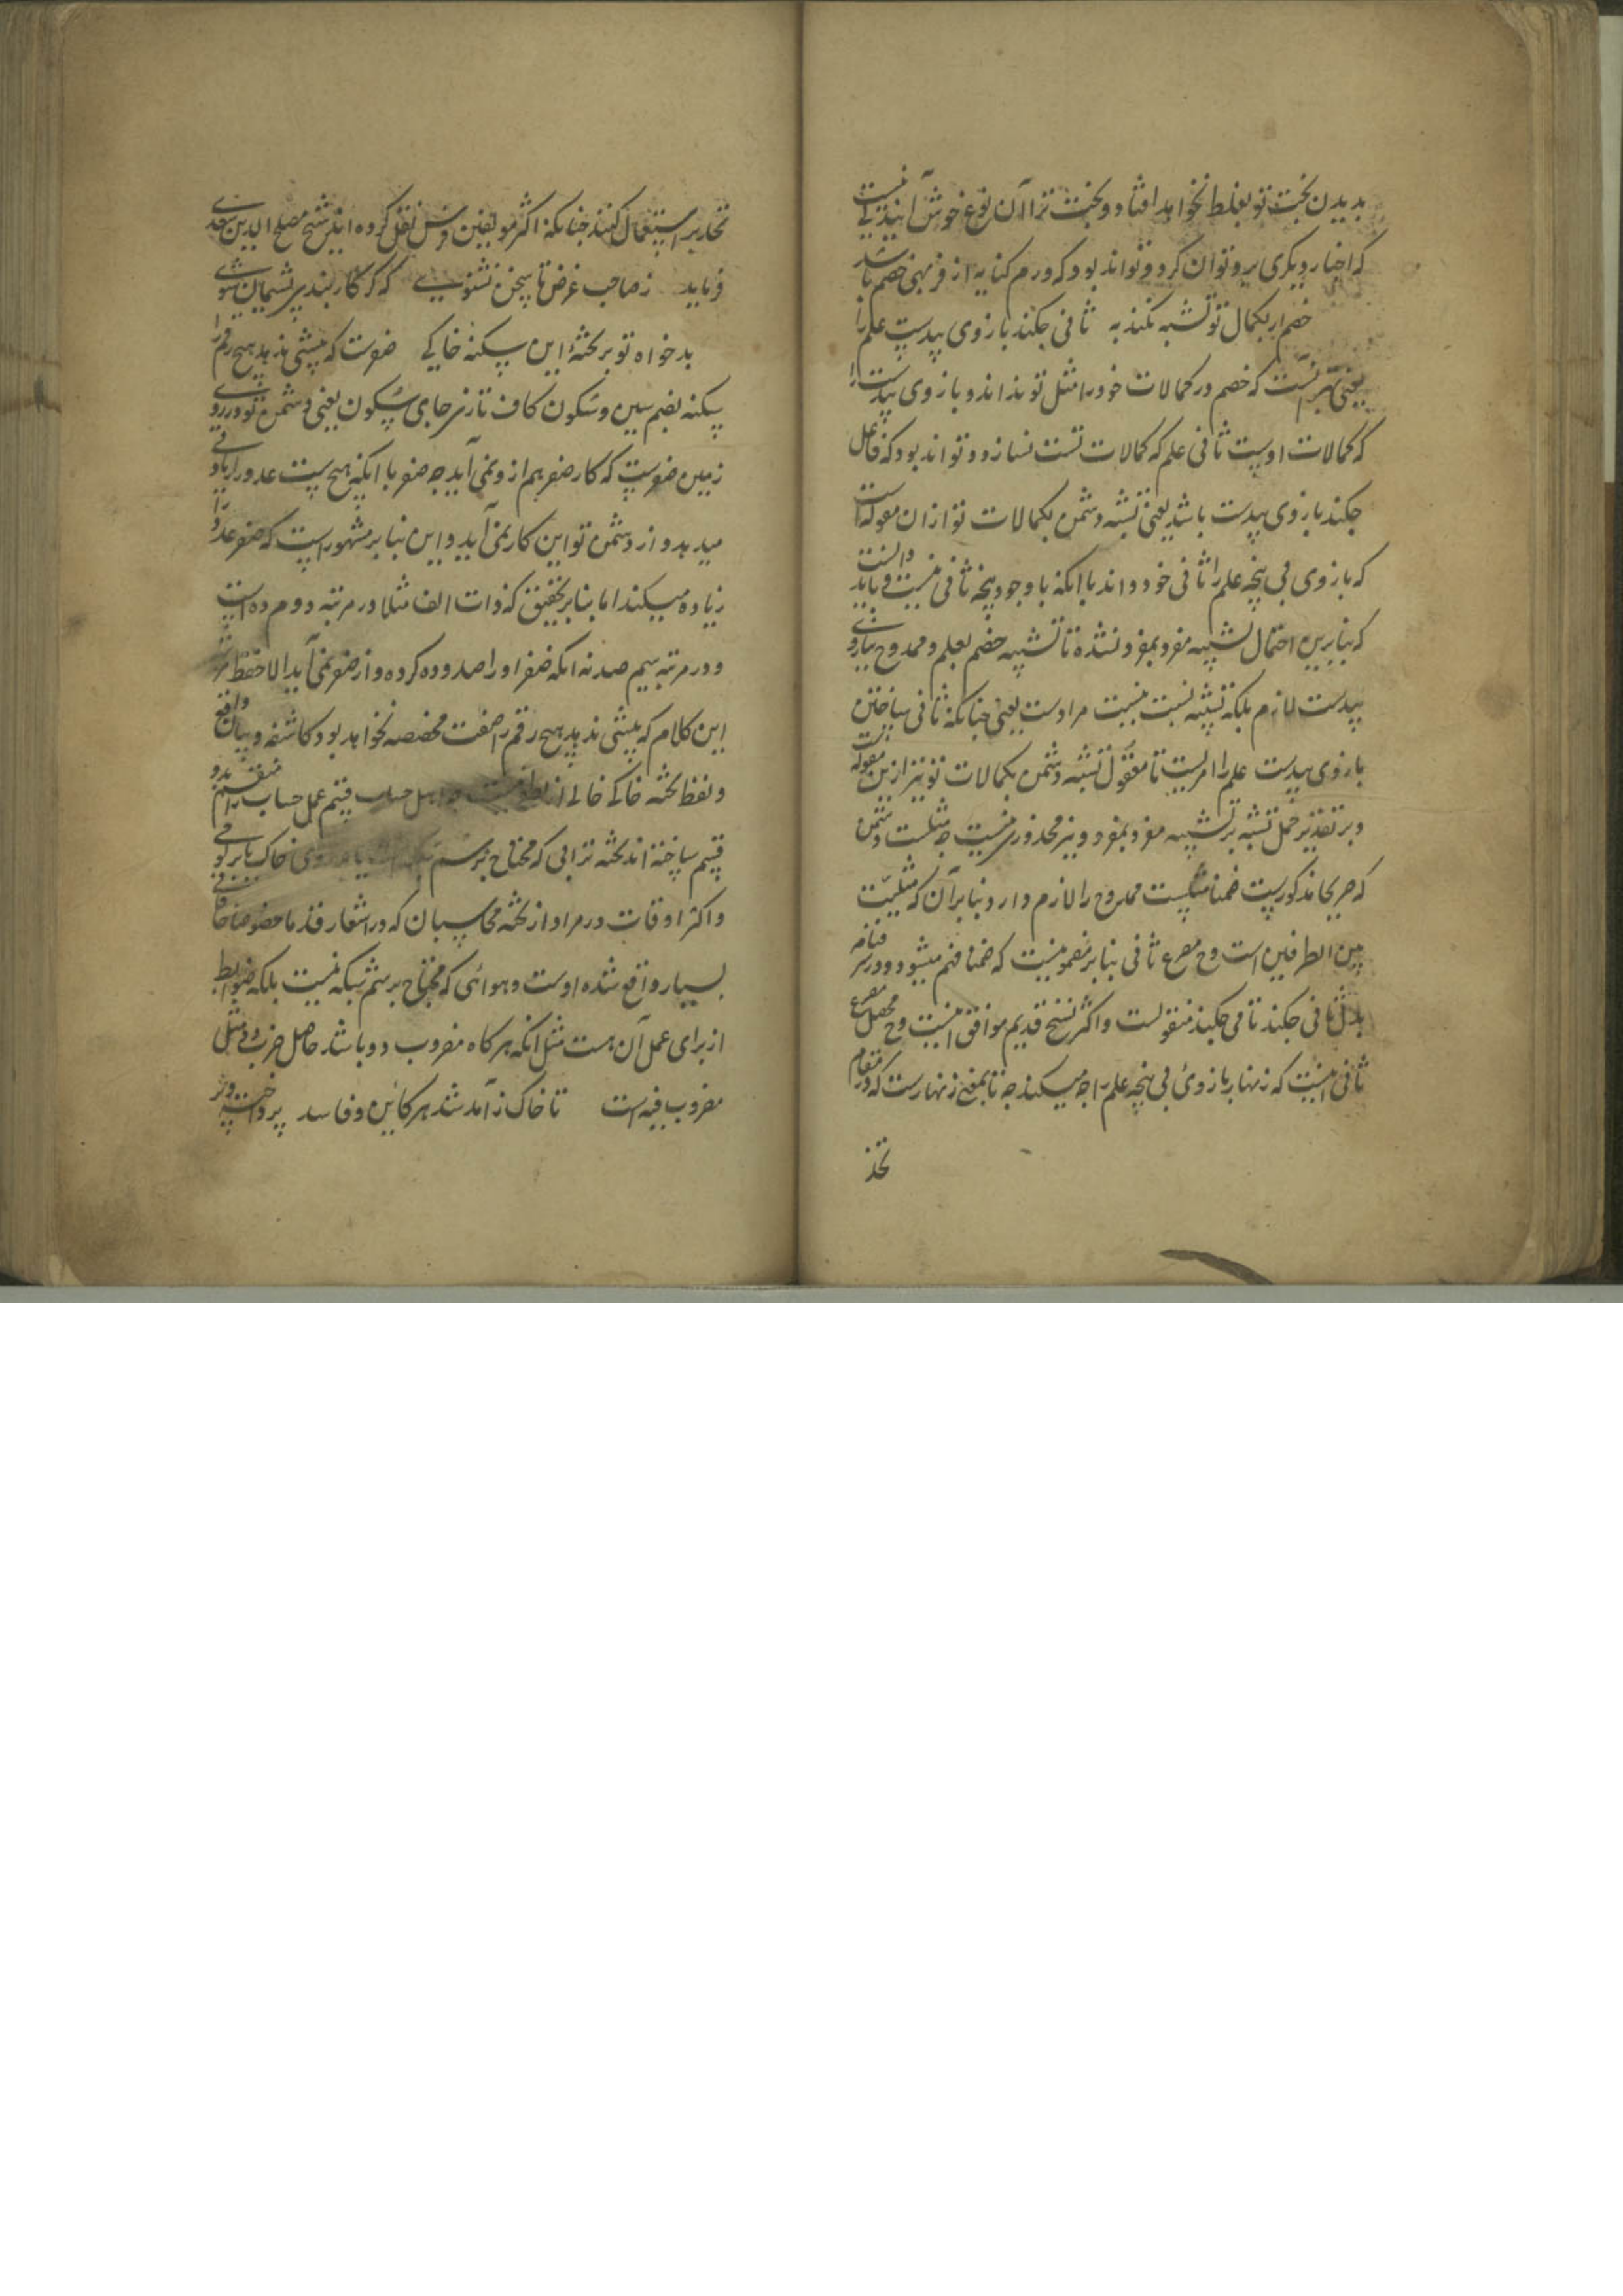 بدیدن بخت تو بغلط نخواهد افتاد و بخت ترا آن نوع خوش آیند نیست
که اختیار دیگری برو توان کرد و تواند بود که ورم کنایه از فربهی خصم باشد
خصم ار بکمال تو تشبه نکند به ثانی چکند بازوی بیدست علم را
یعنی بهتر آنست که خصم در کمالات خود را مثل تو نداند و بازوی بیدست را
که کمالات اوست ثانی علم که کمالات تست نسازد و تواند بود که فاعل
چکند بازوی بیدست باشد یعنی تشبه دشمن بکمالات تو ازان مقوله است
که بازوی بی پنجه علم را ثانی خود داند با آنکه با وجود پنجه ثانی نیست و باید دانست
که بنابرین احتمال تشبیه مفرد بمفرد نشده تا تشبیه خصم بعلم و ممدوح ببازوی
بیدست لازم بلکه تشبیه نسبت بنسبت مرادست یعنی چنانکه ثانی ساختن
بازوی بیدست علم را امریست نامعقول تشبه دشمن بکمالات تو نیز ازین مقوله است
و بر تقدیر حمل تشبه بر تشبیه مفرد بمفرد و نیز محذوری نیست چه مثلیت دشمن
که صریحا مذکورست ضمنا مثلیت ممدوح را لازم دارد بنابر آن که مثلیّت
بین الطرفین است و ح مصرع ثانی بنابر مضمونیست که ضمنا فهم میشود و در سر فنامه
بدل ثانی چکند تا می چکند منقولست و اکثر نسخ قدیم موافق اینست و ح محصل مصرع
ثانی اینست که زنهار بازوی بی پنجه علم را چه میکند چه تا بمعنی زنهارست که در مقام
تحذ
تحذیر استعمال کنند چنانکه اکثر مولفین فرس نقل کرده اند شیخ مصلح الدین سعدی
فرماید ز صاحب غرض تا سخن نشنوی که گر کار بندی پشیمان شوی
بدخواه تو بر تخته این سکنه خاکی صفرست که بیشی ندهد هیچ رقم را
سکنه بضم سین و سکون کاف تازی جای سکون یعنی دشمن تو در روی
زمین صفریست که کار صفر هم ازو نمی آید چه صفر با آنکه هیچ نیست عدد را زیادتی
میدهد و از دشمن تو این کار نمی آید و این بنابر مشهور است که صفر عدد را
زیاده میکند اما بنابر تحقیق که ذات الف مثلا در مرتبه دوم ده است
و در مرتبه سیم صد نه آنکه صفر او را صد و ده کرده و از صفر نمی آید الا حفظ مرتبه
این کلام که بیشی ندهد هیچ رقم را صفت مخصصه نخواهد بود کاشفه و بیان واقع
و لفظ تخته خاکی خالی از لطفی نیست چه اهل حساب قسم عمل حساب را منقسم بدو
قسم ساخته اند تخته ترابی که محتاج برسم شبکه است یا بر روی خاک یا بر لوحی
و اکثر اوقات در مراد از تخته محاسبان که در اشعار قدما خصوصا خاقانی
بسیار واقع شده اوست و هوائی که محتاج برسم شبکه نیست بلکه ضوابط
از برای عمل آن هست مثل آنکه هرگاه مضروب دو باشد حاصل ضرب دو مثل
مضروب فیه است تا خاک ز آمد شد هر کاین و فاسد پرداخته و پر